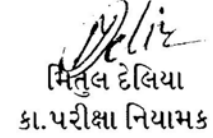 મિતુલ દેલિયા
કા.પરીક્ષા નિયામક